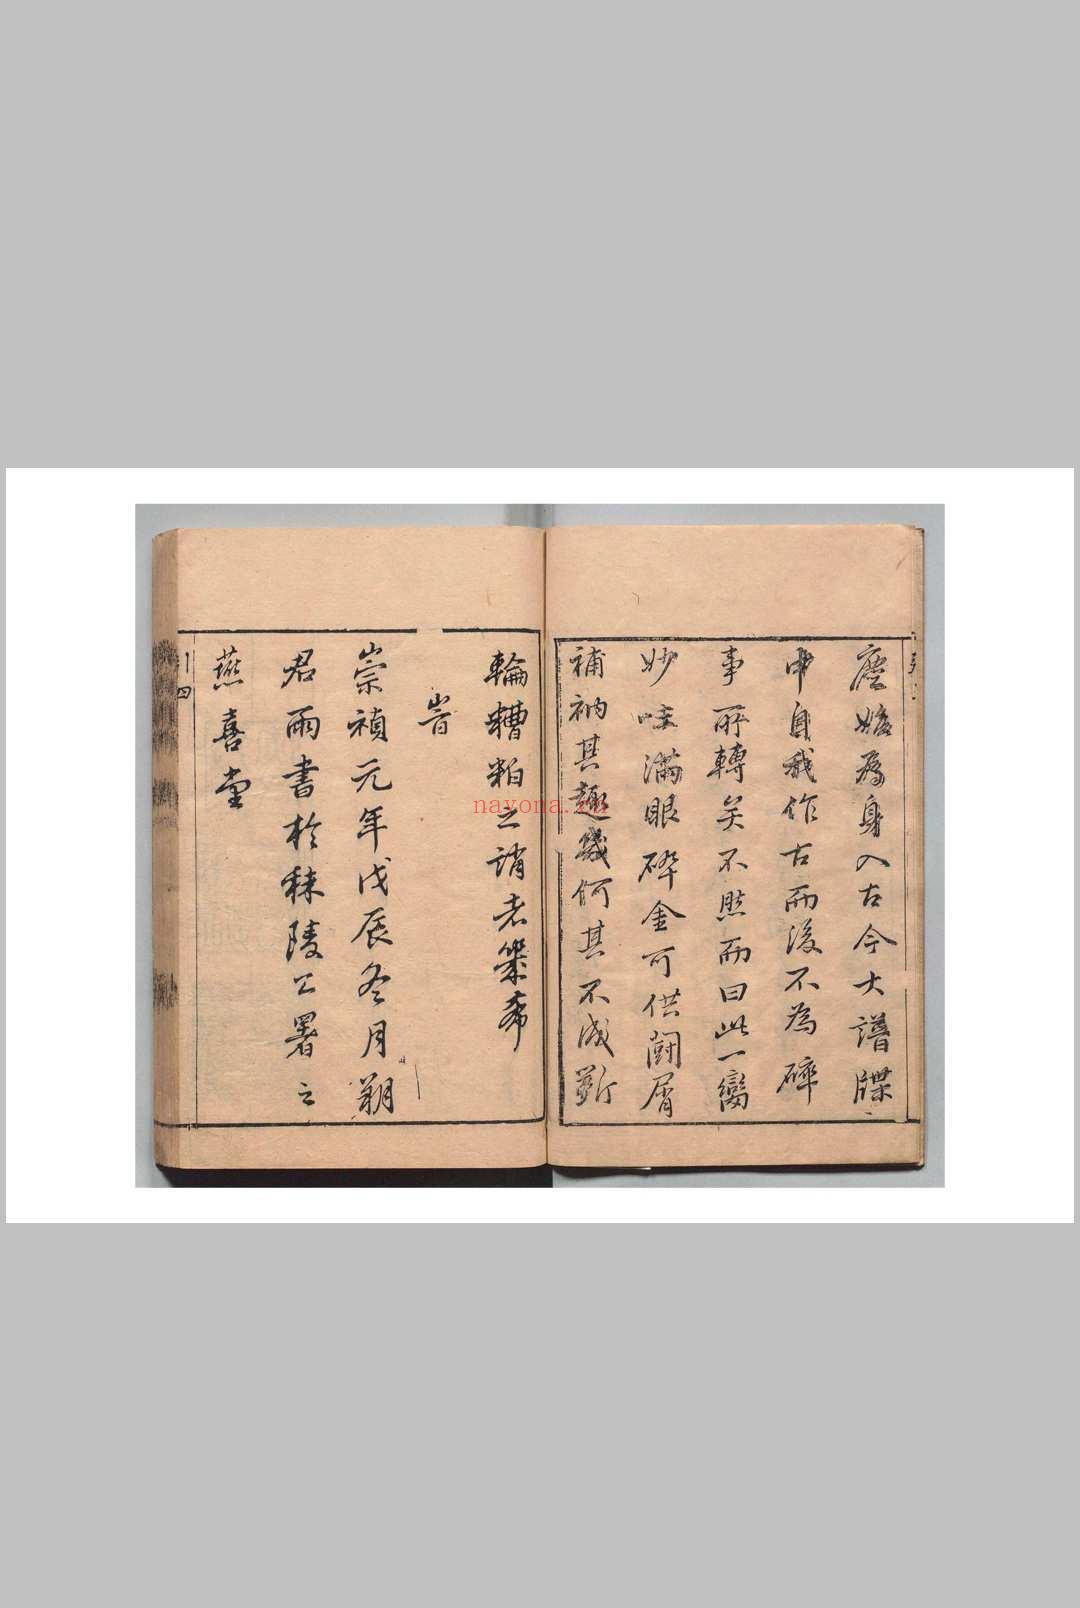 塵嬉為身入古今大譜牒
中自我作古而後不為碎
事所轉矣不然而曰此一臠
妙味滿眼碎金可供鬭屑
補衲其趣幾何其不成斲
輪糟粕之誚者幾希
崇禎元年戊辰冬月朔
君雨書於秣陵公署之
燕喜堂
引四
nayona.cn